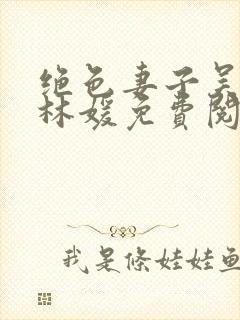 绝色妻子吴
林媛免费阅
我是條娃娃鱼